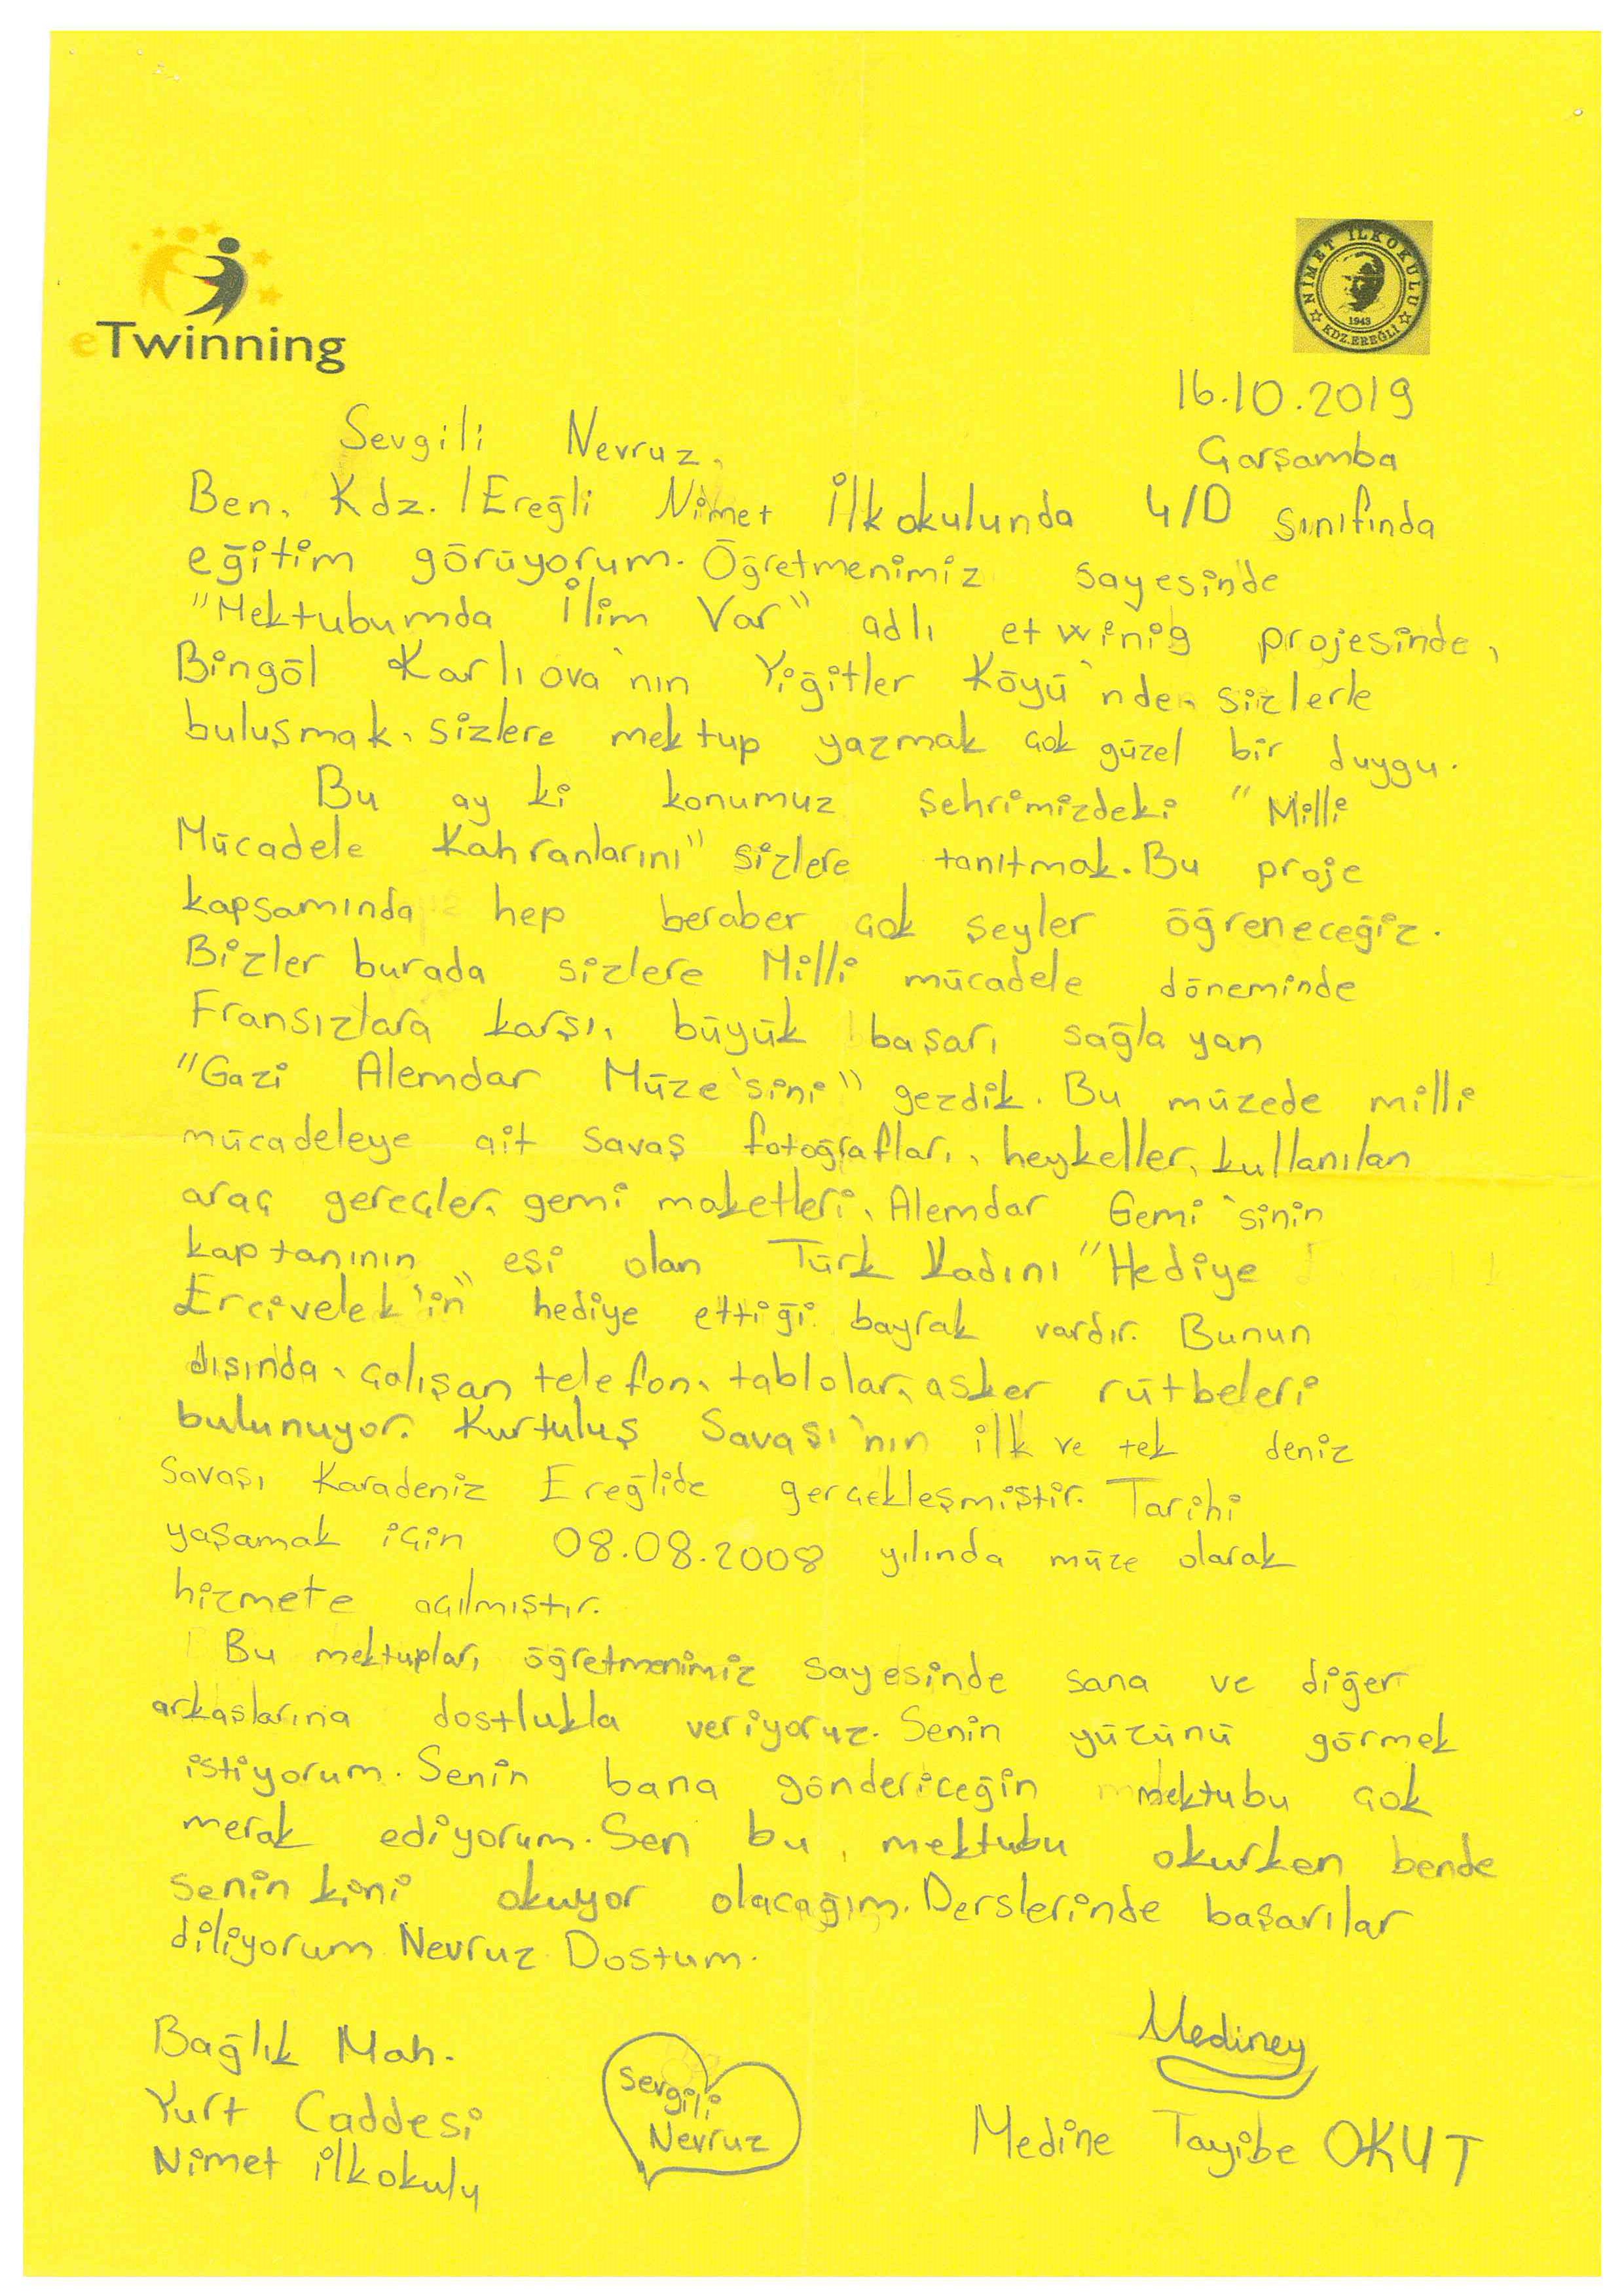 eTwinning
NİMET İLKOKULU
1943
KDZ.EREĞLİ
16.10.2019
Çarşamba
Sevgili Nevruz,
Ben, Kdz. /Ereğli Nimet İlkokulunda 4/D sınıfında
eğitim görüyorum. Öğretmenimiz sayesinde
"Mektubumda İlim Var" adlı etwinig projesinde,
Bingöl Karlıova'nın Yiğitler Köyü'nde, sizlerle
buluşmak, sizlere mektup yazmak çok güzel bir duygu.
Bu ay ki konumuz şehrimizdeki "Milli
Mücadele Kahranlarını" sizlere tanıtmak. Bu proje
kapsamında hep beraber çok şeyler öğreneceğiz.
Bizler burada sizlere Milli mücadele döneminde
Fransızlara karşı, büyük başarı sağla yan
"Gazi Alemdar Müze'sini" gezdik. Bu müzede milli
mücadeleye ait savaş fotoğrafları, heykeller, kullanılan
araç gereçler, gemi maketleri, Alemdar Gemi'sinin
kaptanının eşi olan Türk Kadını "Hediye
Ercivelek'in" hediye ettiği bayrak vardır. Bunun
dışında, çalışan telefon, tablolar, asker rütbeleri
bulunuyor. Kurtuluş Savaşı'nın ilk ve tek deniz
savaşı Karadeniz Ereğlide gerçekleşmiştir. Tarihi
yaşamak için 08.08.2008 yılında müze olarak
hizmete açılmıştır.
Bu mektupları öğretmenimiz sayesinde sana ve diğer
arkaşlarına dostlukla veriyoruz. Senin yüzünü görmek
istiyorum. Senin bana göndericeğin mektubu çok
merak ediyorum. Sen bu, mektubu okurken bende
senin kini okuyor olacağım. Derslerinde başarılar
diliyorum Nevruz Dostum.
Bağlık Mah.
Yurt Caddesi
Nimet ilkokulu
Sevgili
Nevruz
Mediney
Medine Tayibe OKUT